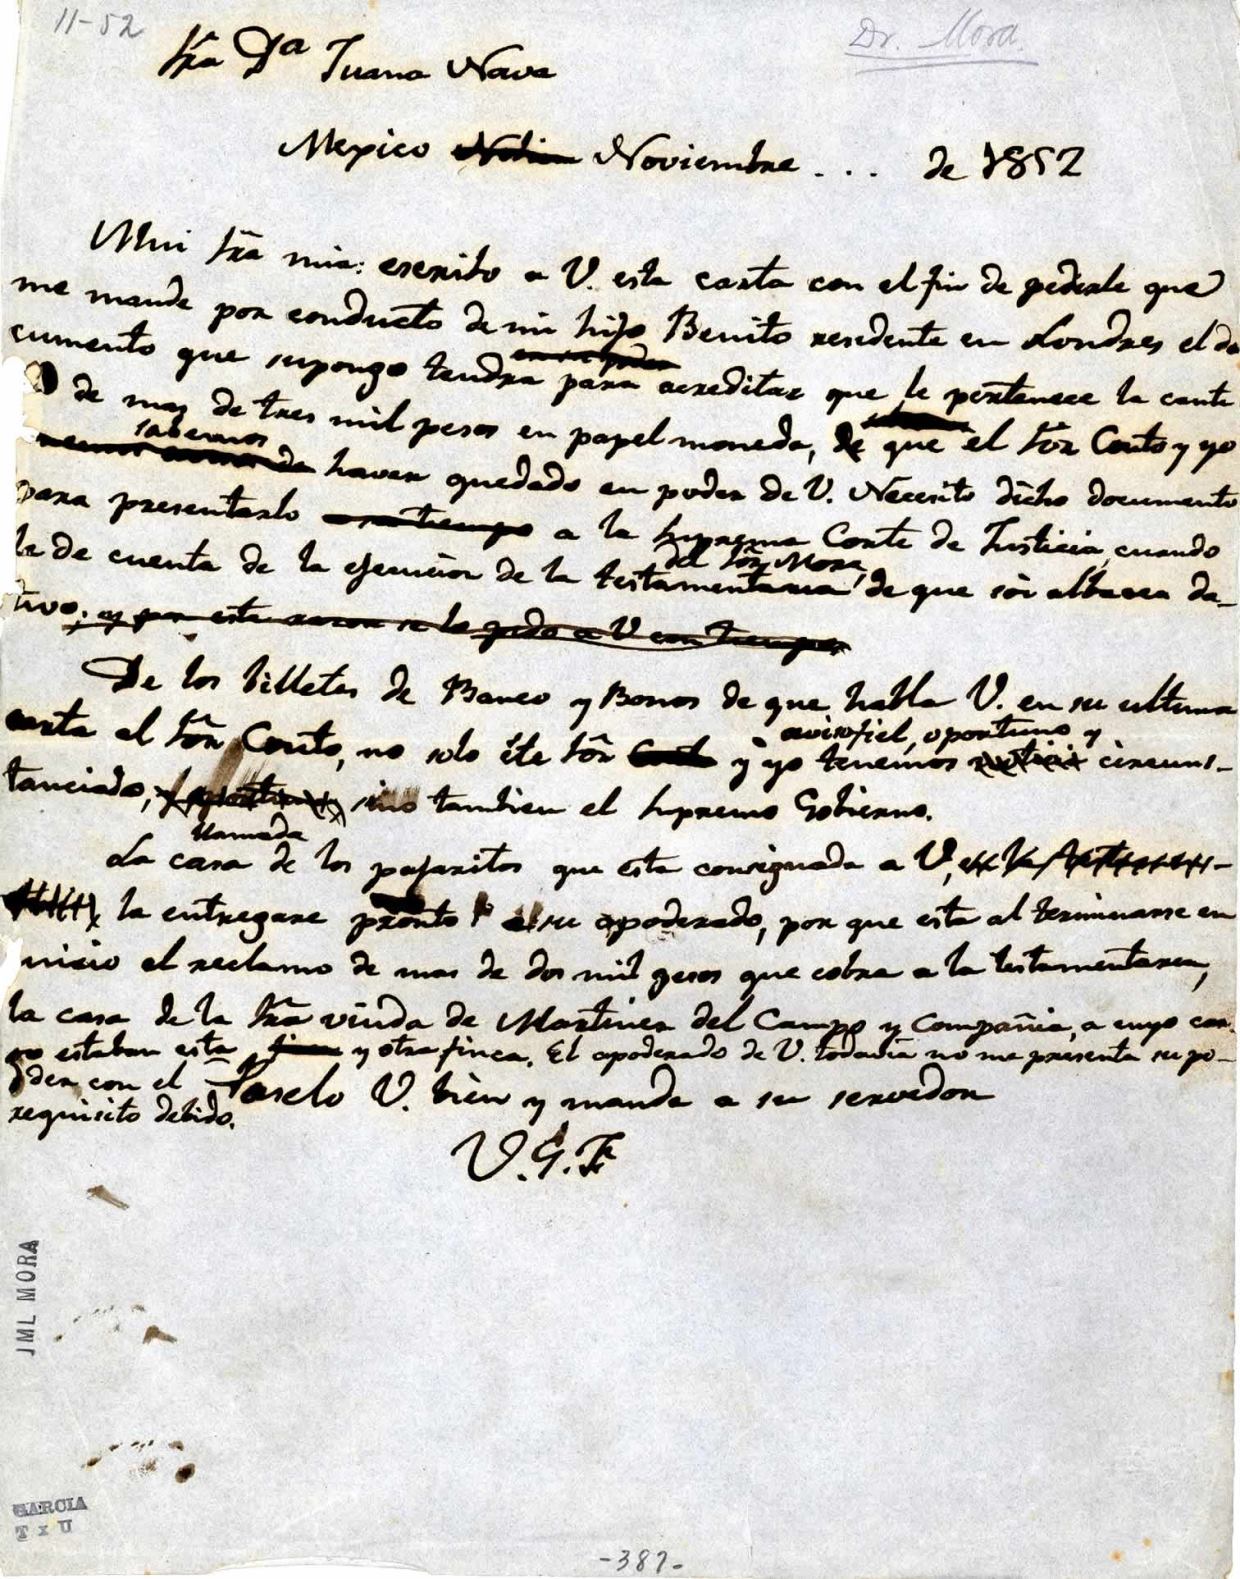 11-52
Dr. Mora.
Sra Da Juana Nava
Mexico Noviembre . . . de 1852
Mui Sra mia: escribo a V. esta carta con el fin de pedirle que
me mande por conducto de mi hijo Benito residente en Londres el do
cumento que supongo tendra para acreditar que le pertenece la canti
D de mas de tres mil pesos en papel moneda, de que el Sor Couto y yo
sabemos
de haver quedado en poder de V. Necesito dicho documento
para presentarlo a su tiempo a la Suprema Corte de Justicia, cuando
del Sor Mora,
le de cuenta de la ejecucion de la testamentaria de que soi albacea da-
tivo; y por esta razon se lo pido a V con tiempo
De los billetes de Banco y Bonos de que habla V. en su ultima
carta al Sor Couto, no solo éste Sor Couto y yo tenemos noticia circuns-
aviso fiel, oportuno y
tanciado, sino tambien el Supremo Gobierno.
llamada
La casa de los pajaritos que esta consignada a V,
la entregare pronto a su apoderado, por que esta al terminarse en
juicio el reclamo de mas de dos mil pesos que cobra a la testamentaria,
la casa de la Sra viuda de Martinez del Campo y Compañia, a cuyo car
go estaban esta finca y otra finca. El apoderado de V. todavia no me presenta su po-
der con el
requisito debido.
Paselo V. bien y mande a su servidor
V. G. F.
JML MORA
GARCIA
-387-